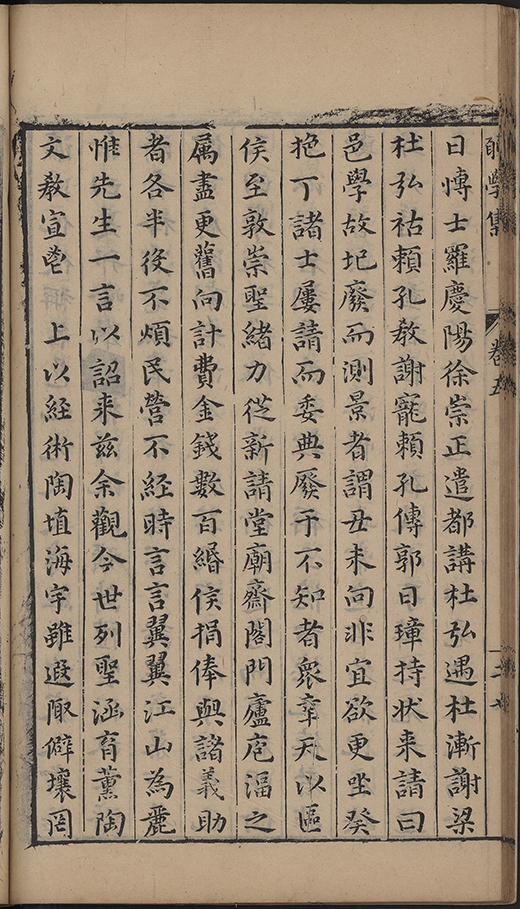 學集 卷五
曰博士羅慶陽徐崇正遣都講杜弘遇杜漸謝梁
杜弘祜賴孔教謝寵賴孔傳郭日璋持状来請曰
邑學故圮廢而測景者謂丑未向非宜欲更坐癸
挹丁諸士屢請而委典廢于不知者衆幸天以區
侯至敦崇聖緒力從新請堂廟齋閣門廬庖湢之
属盡更舊向計費金錢數百緡侯捐俸與諸義助
者各半役不煩民營不經時言言翼翼江山為麗
惟先生一言以詔来兹余觀今世列聖涵育薰陶
文教宣邕 上以経術陶埴海宇雖遐陬僻壤罔